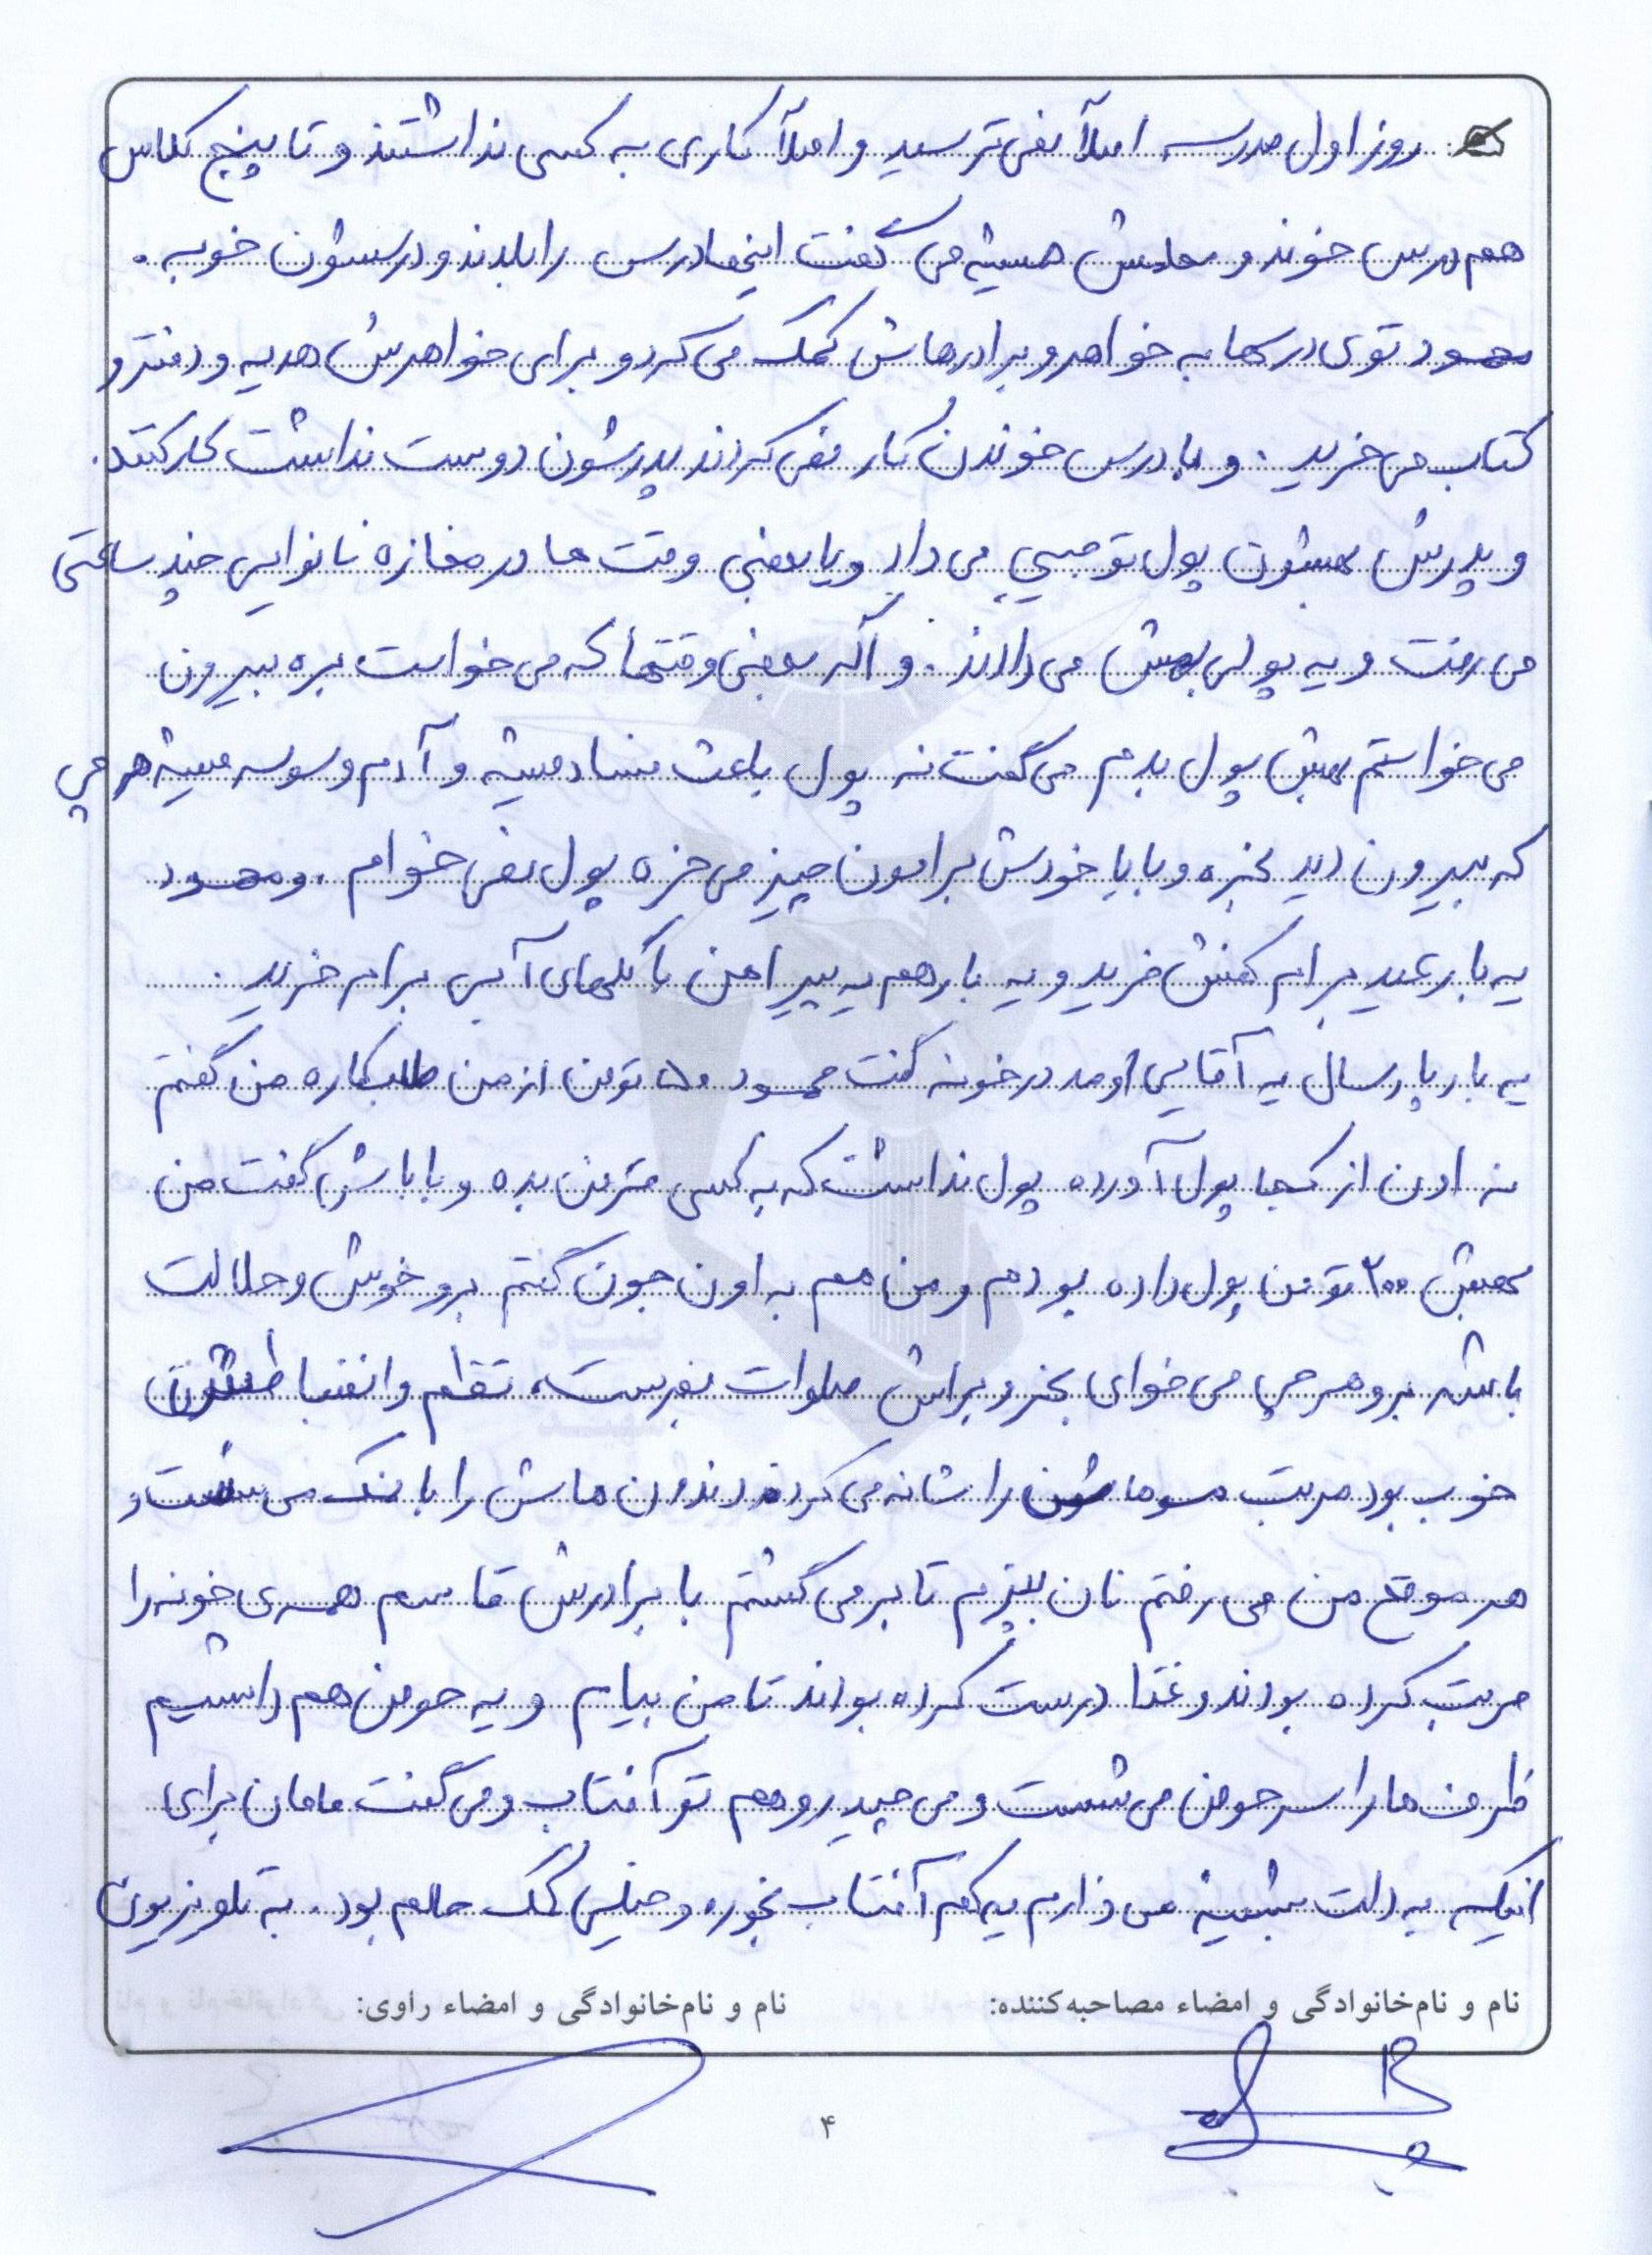 روز اول مدرسه اصلاً نمی ترسید و اصلاً کاری به کسی نداشتند و تا پنج کلاس
هم درس خوند و معلمش همیشه می گفت اینها درس را بلدند و درسشون خوبه.
محمود توی درسها به خواهر و برادرهاش کمک می کرد و برای خواهرش هدیه و دفتر و
کتاب می خرید. و با درس خوندن کار نمی کردند پدرشون دوست نداشت کار کنند.
و پدرش بهشون پول تو جیبی می داد و یا بعضی وقت ها در مغازه نانوایی چند ساعتی
می رفت و یه پولی بهش می دادند. و اگر بعضی وقتها که می خواست بره بیرون
می خواستم بهش پول بدم می گفت نه پول باعث فساد میشه و آدم وسوسه میشه هر چی
که بیرون دید بخره و بابا خودش برامون چیز می خره پول نمی خوام. و محمود
یه بار عید برام کفش خرید و یه بار هم یه پیراهن با گلهای آبی برام خرید.
یه بار پارسال یه آقایی اومد در خونه گفت محمود ۵۰ تومن از من طلبکاره من گفتم
نه اون از کجا پول آورده پول نداشت که به کسی قرض بده و باباش گفت من
بهش ۲۰۰ تومن پول داده بودم و من هم به اون جون گفتم برو خوش و حلالت
باشه برو هر چی می خوای بخر و براش صلوات بفرست. نظم و انضباطشون
خوب بود مرتب موهاشون را شانه می کردند دندون هاش را با نمک می شست و
هر موقع من می رفتم نان بپزم تا بر می گشتم با برادرش قاسم همه ی خونه را
مرتب کرده بودند و غذا درست کرده بودند تا من بیام و یه حوض هم داشتیم
ظرف ها را سر حوض می شست و می چید رو هم تو آفتاب و می گفت مامان برای
اینکه به دلت بشینه می ذارم یه کم آفتاب بخوره و خیلی کمک حالم بود. به تلویزیون
نام و نام‌خانوادگی و امضاء مصاحبه‌کننده:
نام و نام‌خانوادگی و امضاء راوی:
۴